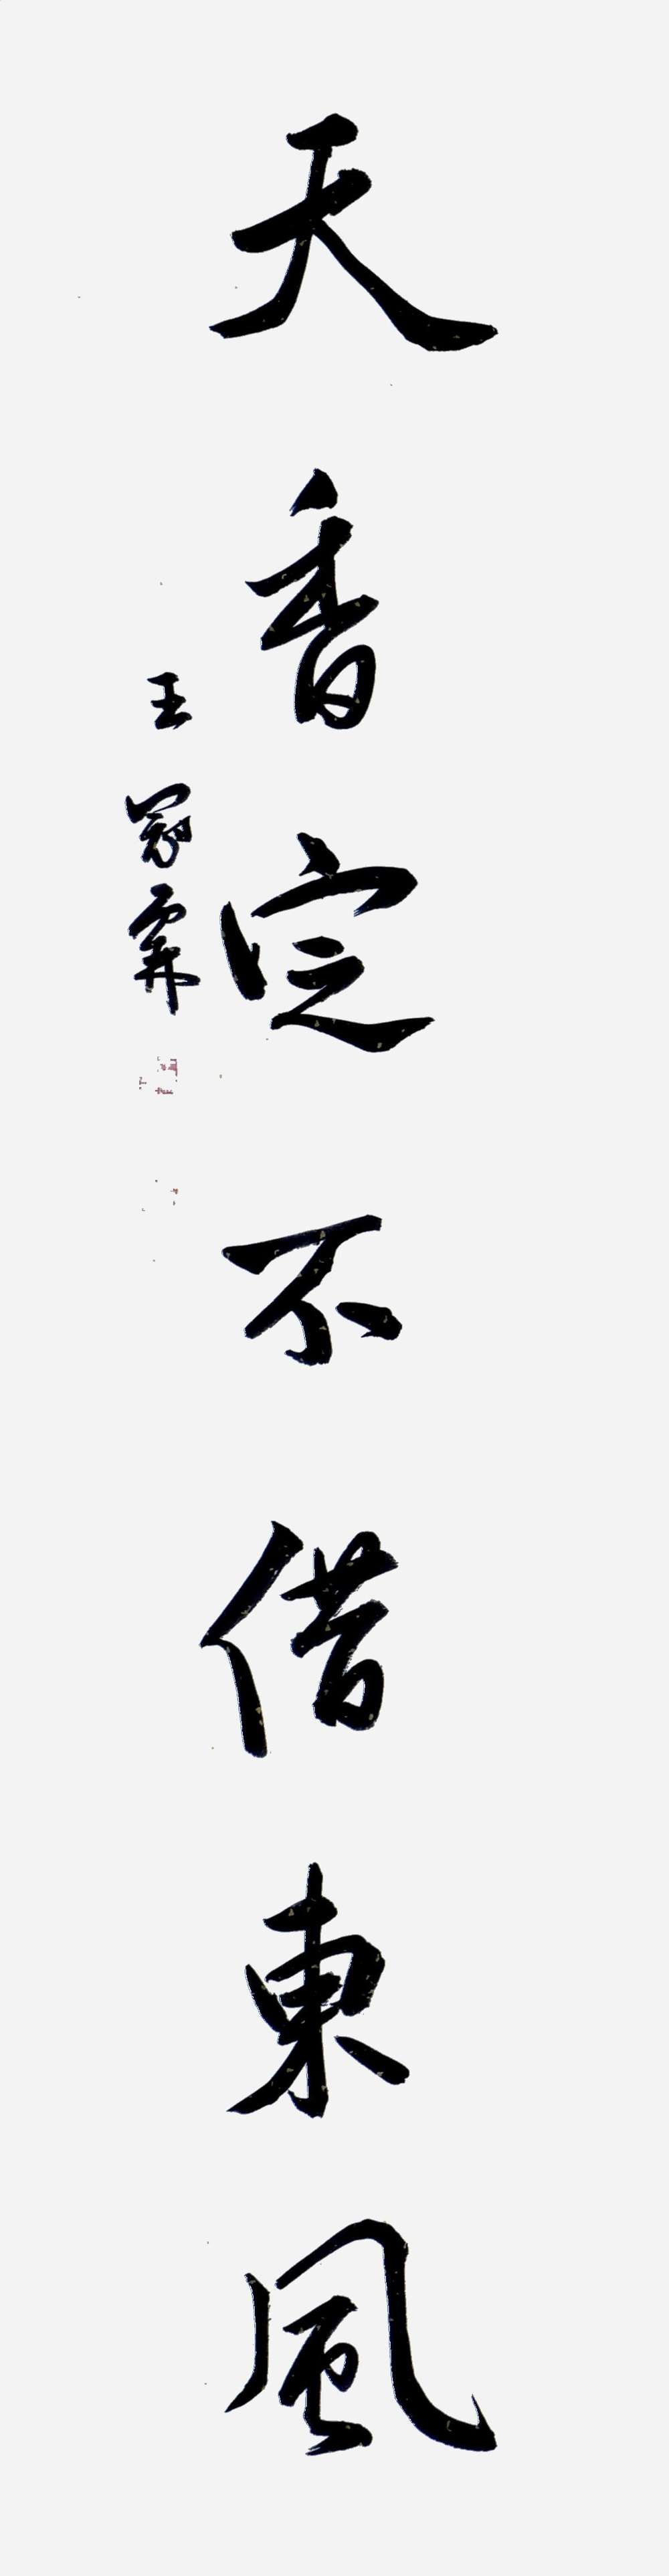 天香定不借東風
王冠霖